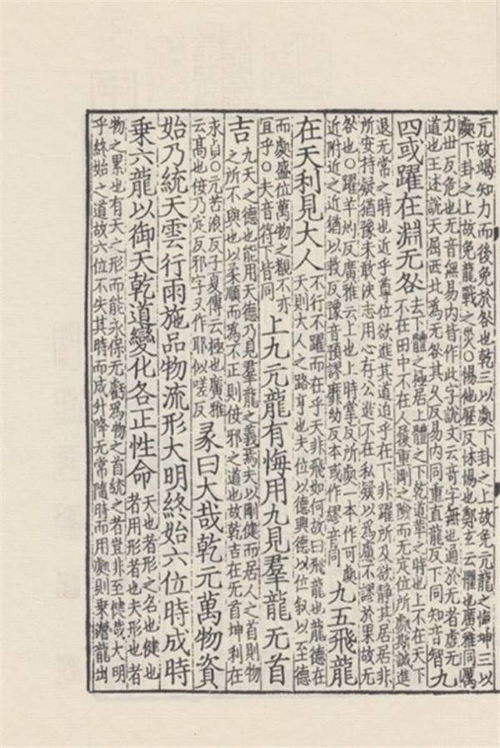 亢故竭知力而後免於咎也乾三以處下卦之上故免亢龍之悔坤三以
處下卦之上故免龍戰之災○惕他歷反怵惕也鄭玄云懼也廣雅同厲
力世反危也无音無易內皆作此字說文云奇字無也通於无者虛无
道也王述說天屈西北為无咎其久反易內同重直龍反下同知音智
九
四或躍在淵无咎
去下體之極居上體之下乾道革之時也上不在天下
不在田中不在人履重剛之險而无定位所處斯誠進
退无常之時也近乎尊位欲進其道迫乎在下非躍所及欲靜其居居非
所安持疑猶豫未敢決志用心存公進不在私疑以為慮不謬於果故无
咎也○躍羊灼反廣雅云上也上時掌反所處一本作可處
近附近之近猶以救反豫音預謬靡幼反本或作繆音同
九五飛龍
在天利見大人
不行不躍而在乎天非飛如何故曰飛龍也龍德在
天則大人之路亨也夫位以德興德以位敘以至德
而處盛位萬物之覩不亦
宜乎○夫音符下皆同
上九亢龍有悔用九見羣龍无首
吉
九天之德也能用天德乃見羣龍之義焉夫以剛健而居人之首則物
之所不與也以柔順而為不正則佞邪之道也故乾吉在无首坤利在
永貞○亢苦浪反子夏傳云極也廣雅
云高也佞乃定反邪字又作耶似嗟反
彖曰大哉乾元萬物資
始乃統天雲行雨施品物流形大明終始六位時成時
乘六龍以御天乾道變化各正性命
天也者形之名也健也
者用形者也夫形也者
物之累也有天之形而能永保无虧為物之首統之者豈非至健哉大明
乎終始之道故六位不失其時而成升降无常隨時而用處則乘潛龍出